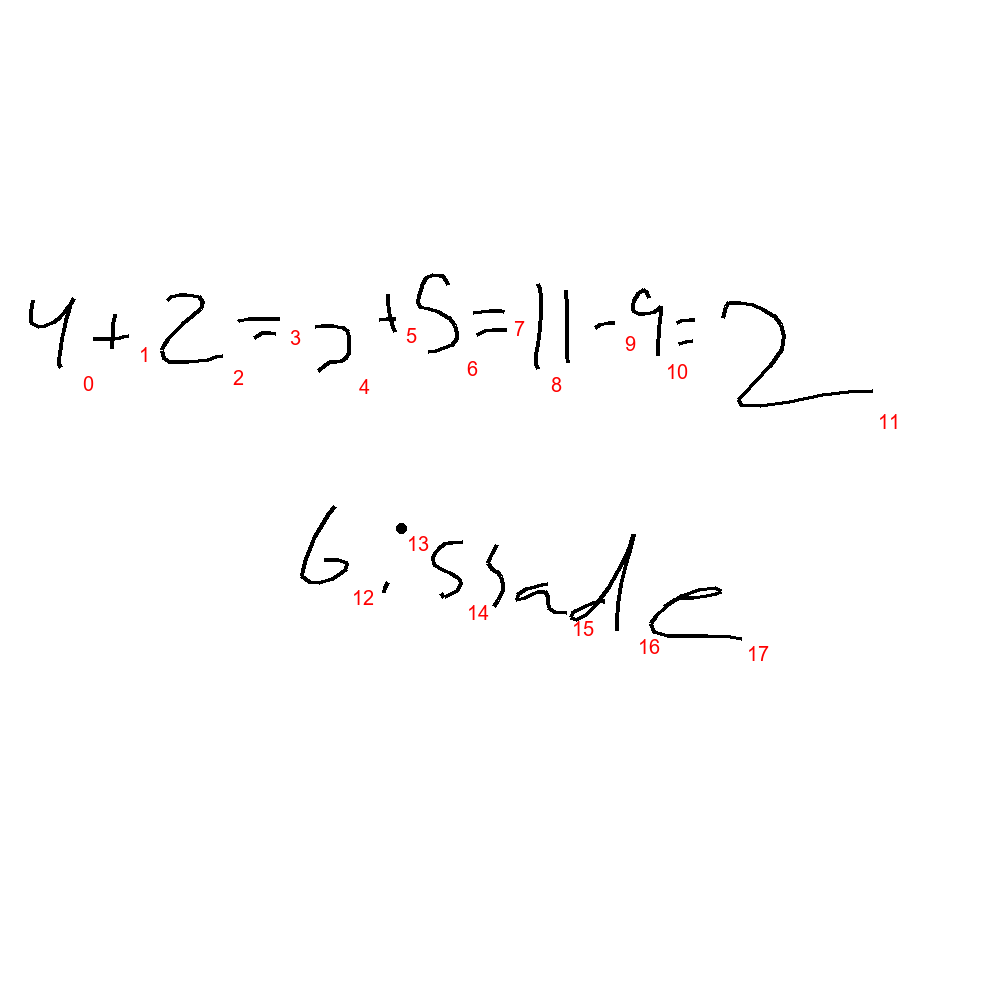 4+2= +5=11-9=2
0 1 2 3 4 5 6 7 8 9 10 11
6issade
12 13 14 15 16 17